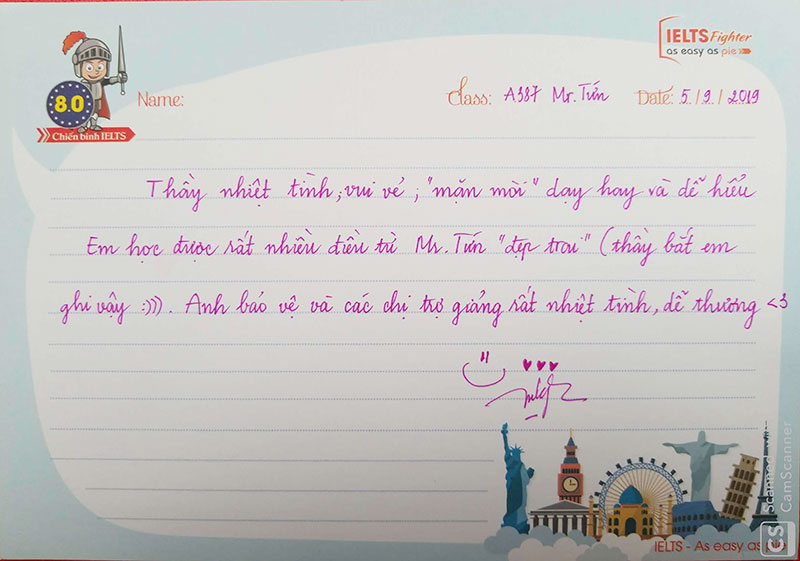 IELTS Fighter
as easy as pie
8.0
Chiến binh IELTS
Name:
Class: A387 Mr. Tấn Date: 5/9/2019
Thầy nhiệt tình, vui vẻ, "mặn mòi" dạy hay và dễ hiểu
Em học được rất nhiều điều từ Mr. Tấn "đẹp trai" (thầy bắt em
ghi vậy :))). Anh bảo vệ và các chị trợ giảng rất nhiệt tình, dễ thương <3
IELTS - As easy as pie
CS Scanned with CamScanner